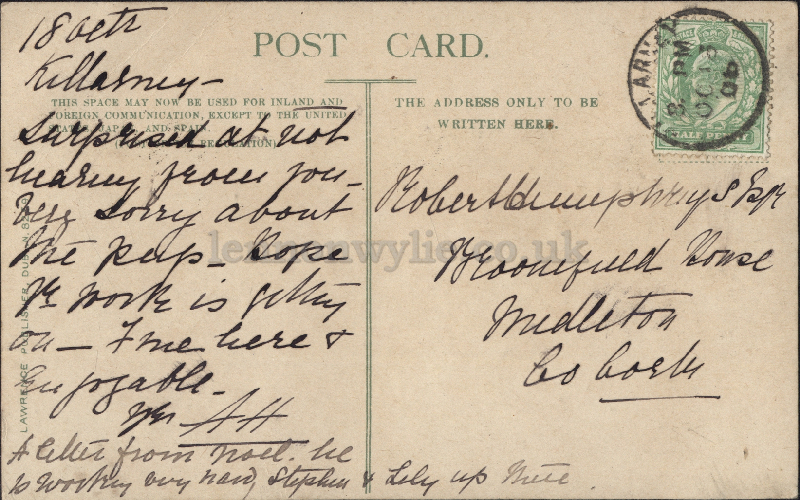 18 Octr
Killarney –
POST CARD.
THIS SPACE MAY NOW BE USED FOR INLAND AND
FOREIGN COMMUNICATION, EXCEPT TO THE UNITED
STATES, JAPAN, AND SPAIN.
Surprised at not
hearing from you –
Very sorry about
the pup – Hope
Yr work is getting
on – Fine here &
Enjoyable –
Yrs AH
A letter from Noel. he
is working very hard, Stephen & Lily up there.
THE ADDRESS ONLY TO BE
WRITTEN HERE.
Robert Humphrys Esqr
Broomefield House
Midleton
Co Cork
LAWRENCE PUBLISHER, DUBLIN
KILLARNEY
8 PM
OC 18
06
HALF PENNY
lennonwylie.co.uk